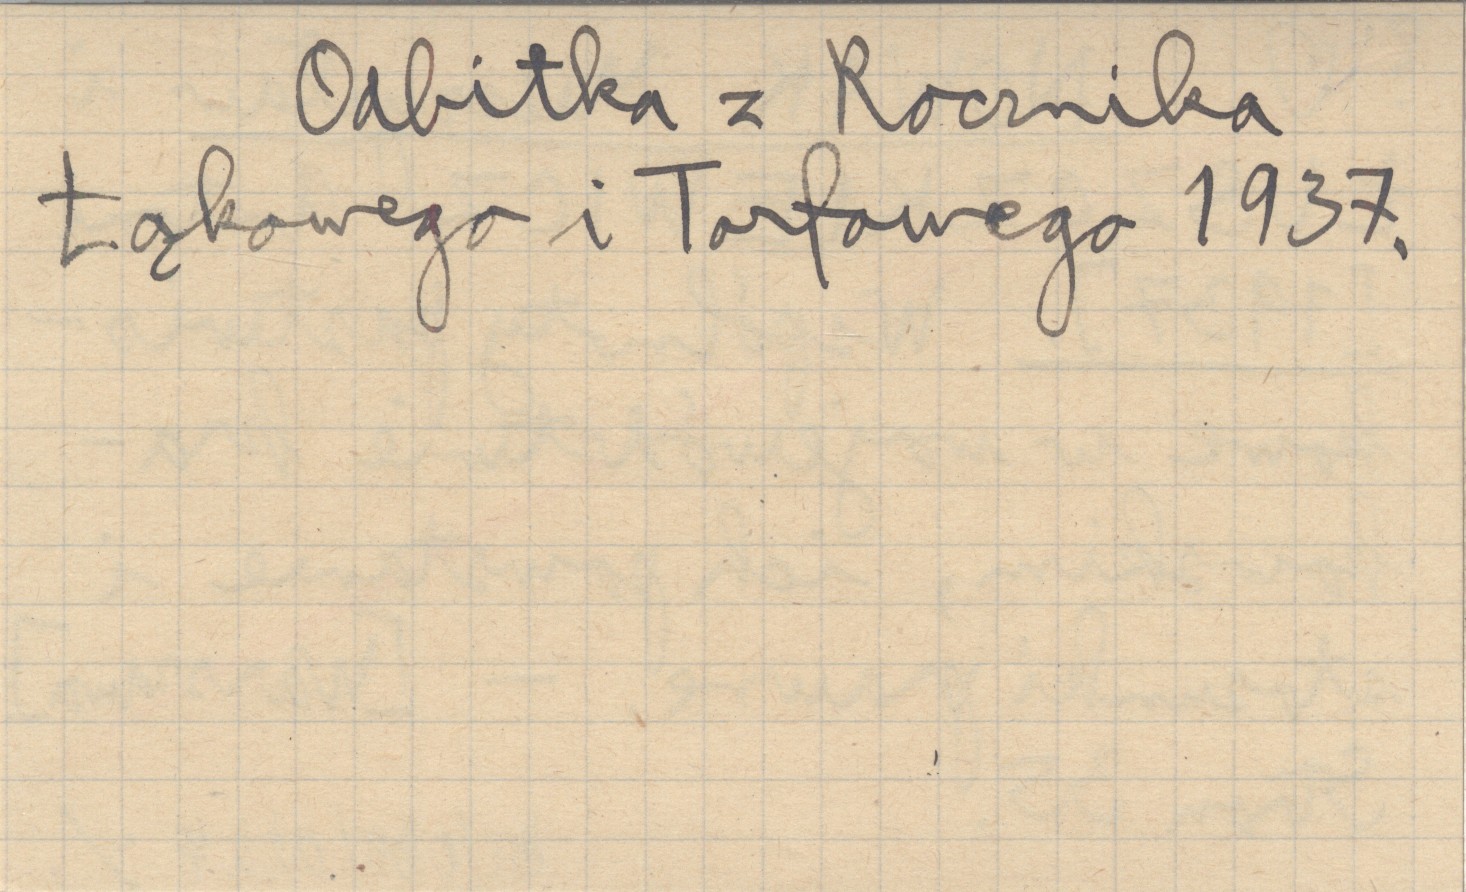 Odbitka z Rocznika
Łąkowego i Torfowego 1937.